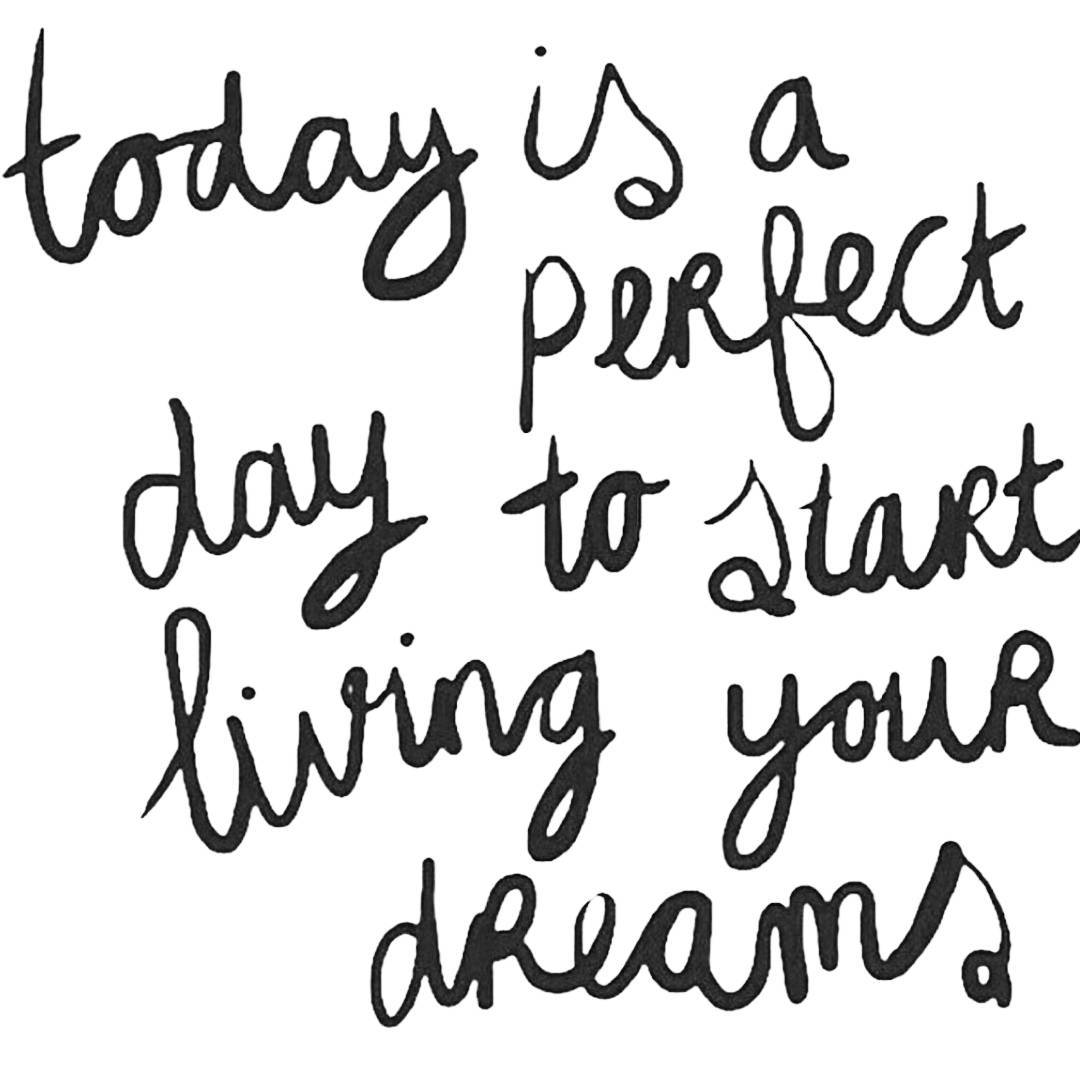 today is a
perfect
day to start
living your
dreams